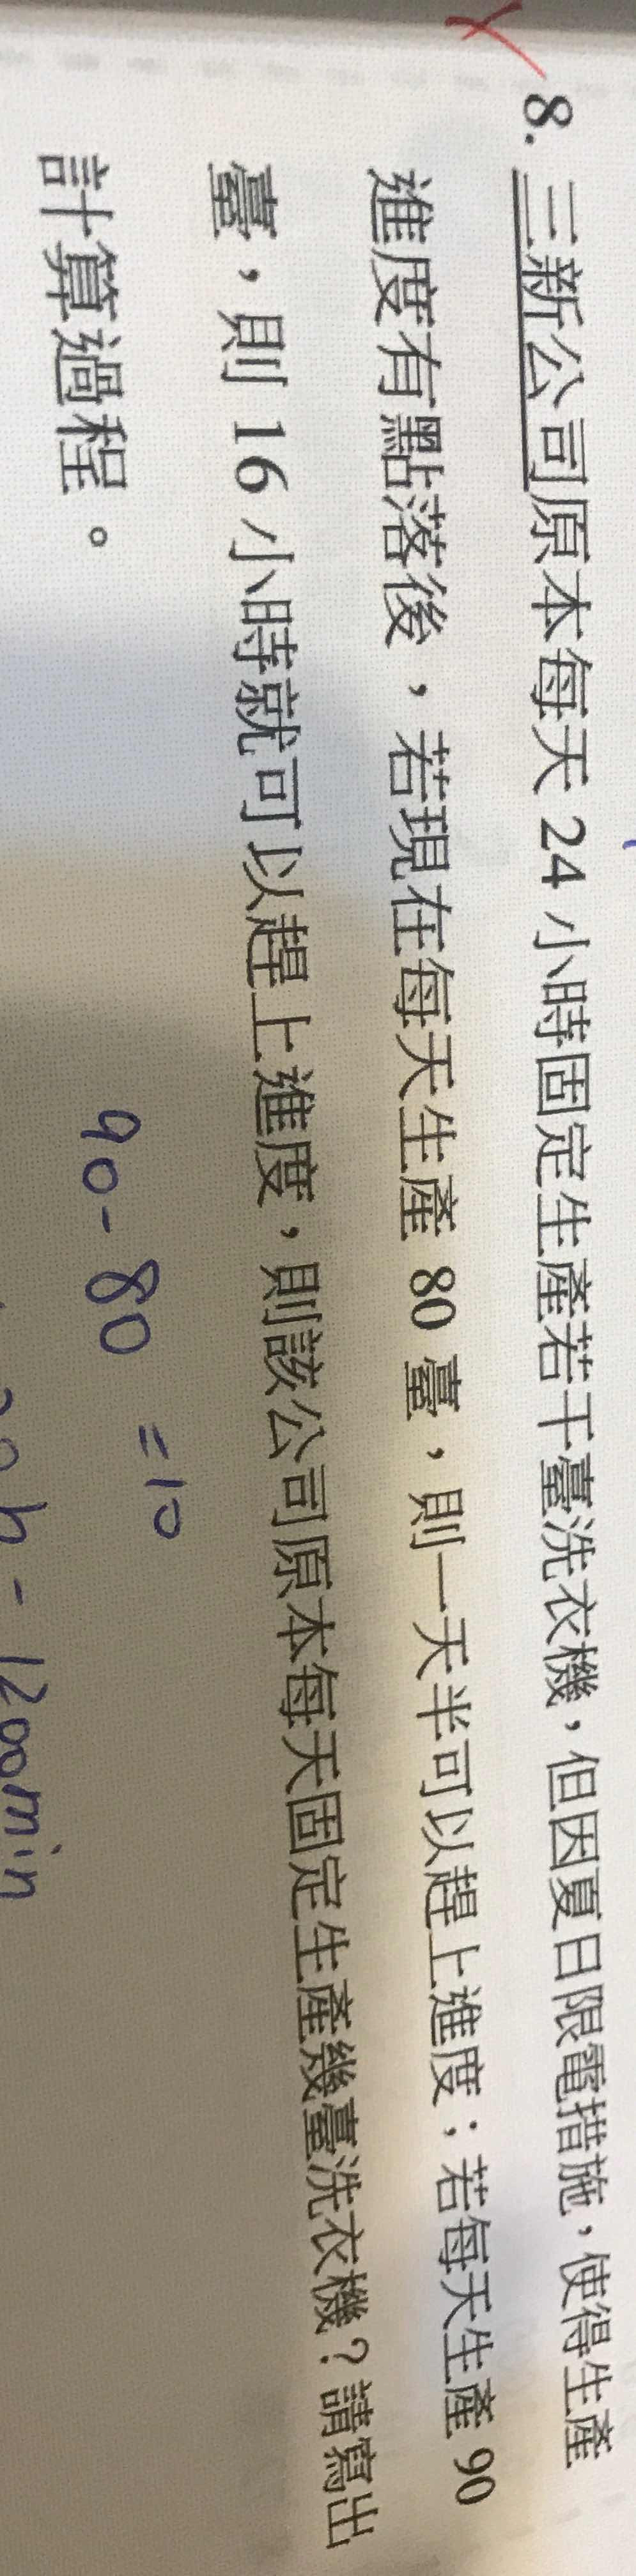 8. 三新公司原本每天 24 小時固定生產若干臺洗衣機，但因夏日限電措施，使得生產
進度有點落後，若現在每天生產 80 臺，則一天半可以趕上進度；若每天生產 90
臺，則 16 小時就可以趕上進度，則該公司原本每天固定生產幾臺洗衣機？請寫出
計算過程。
90-80 =10
1200min